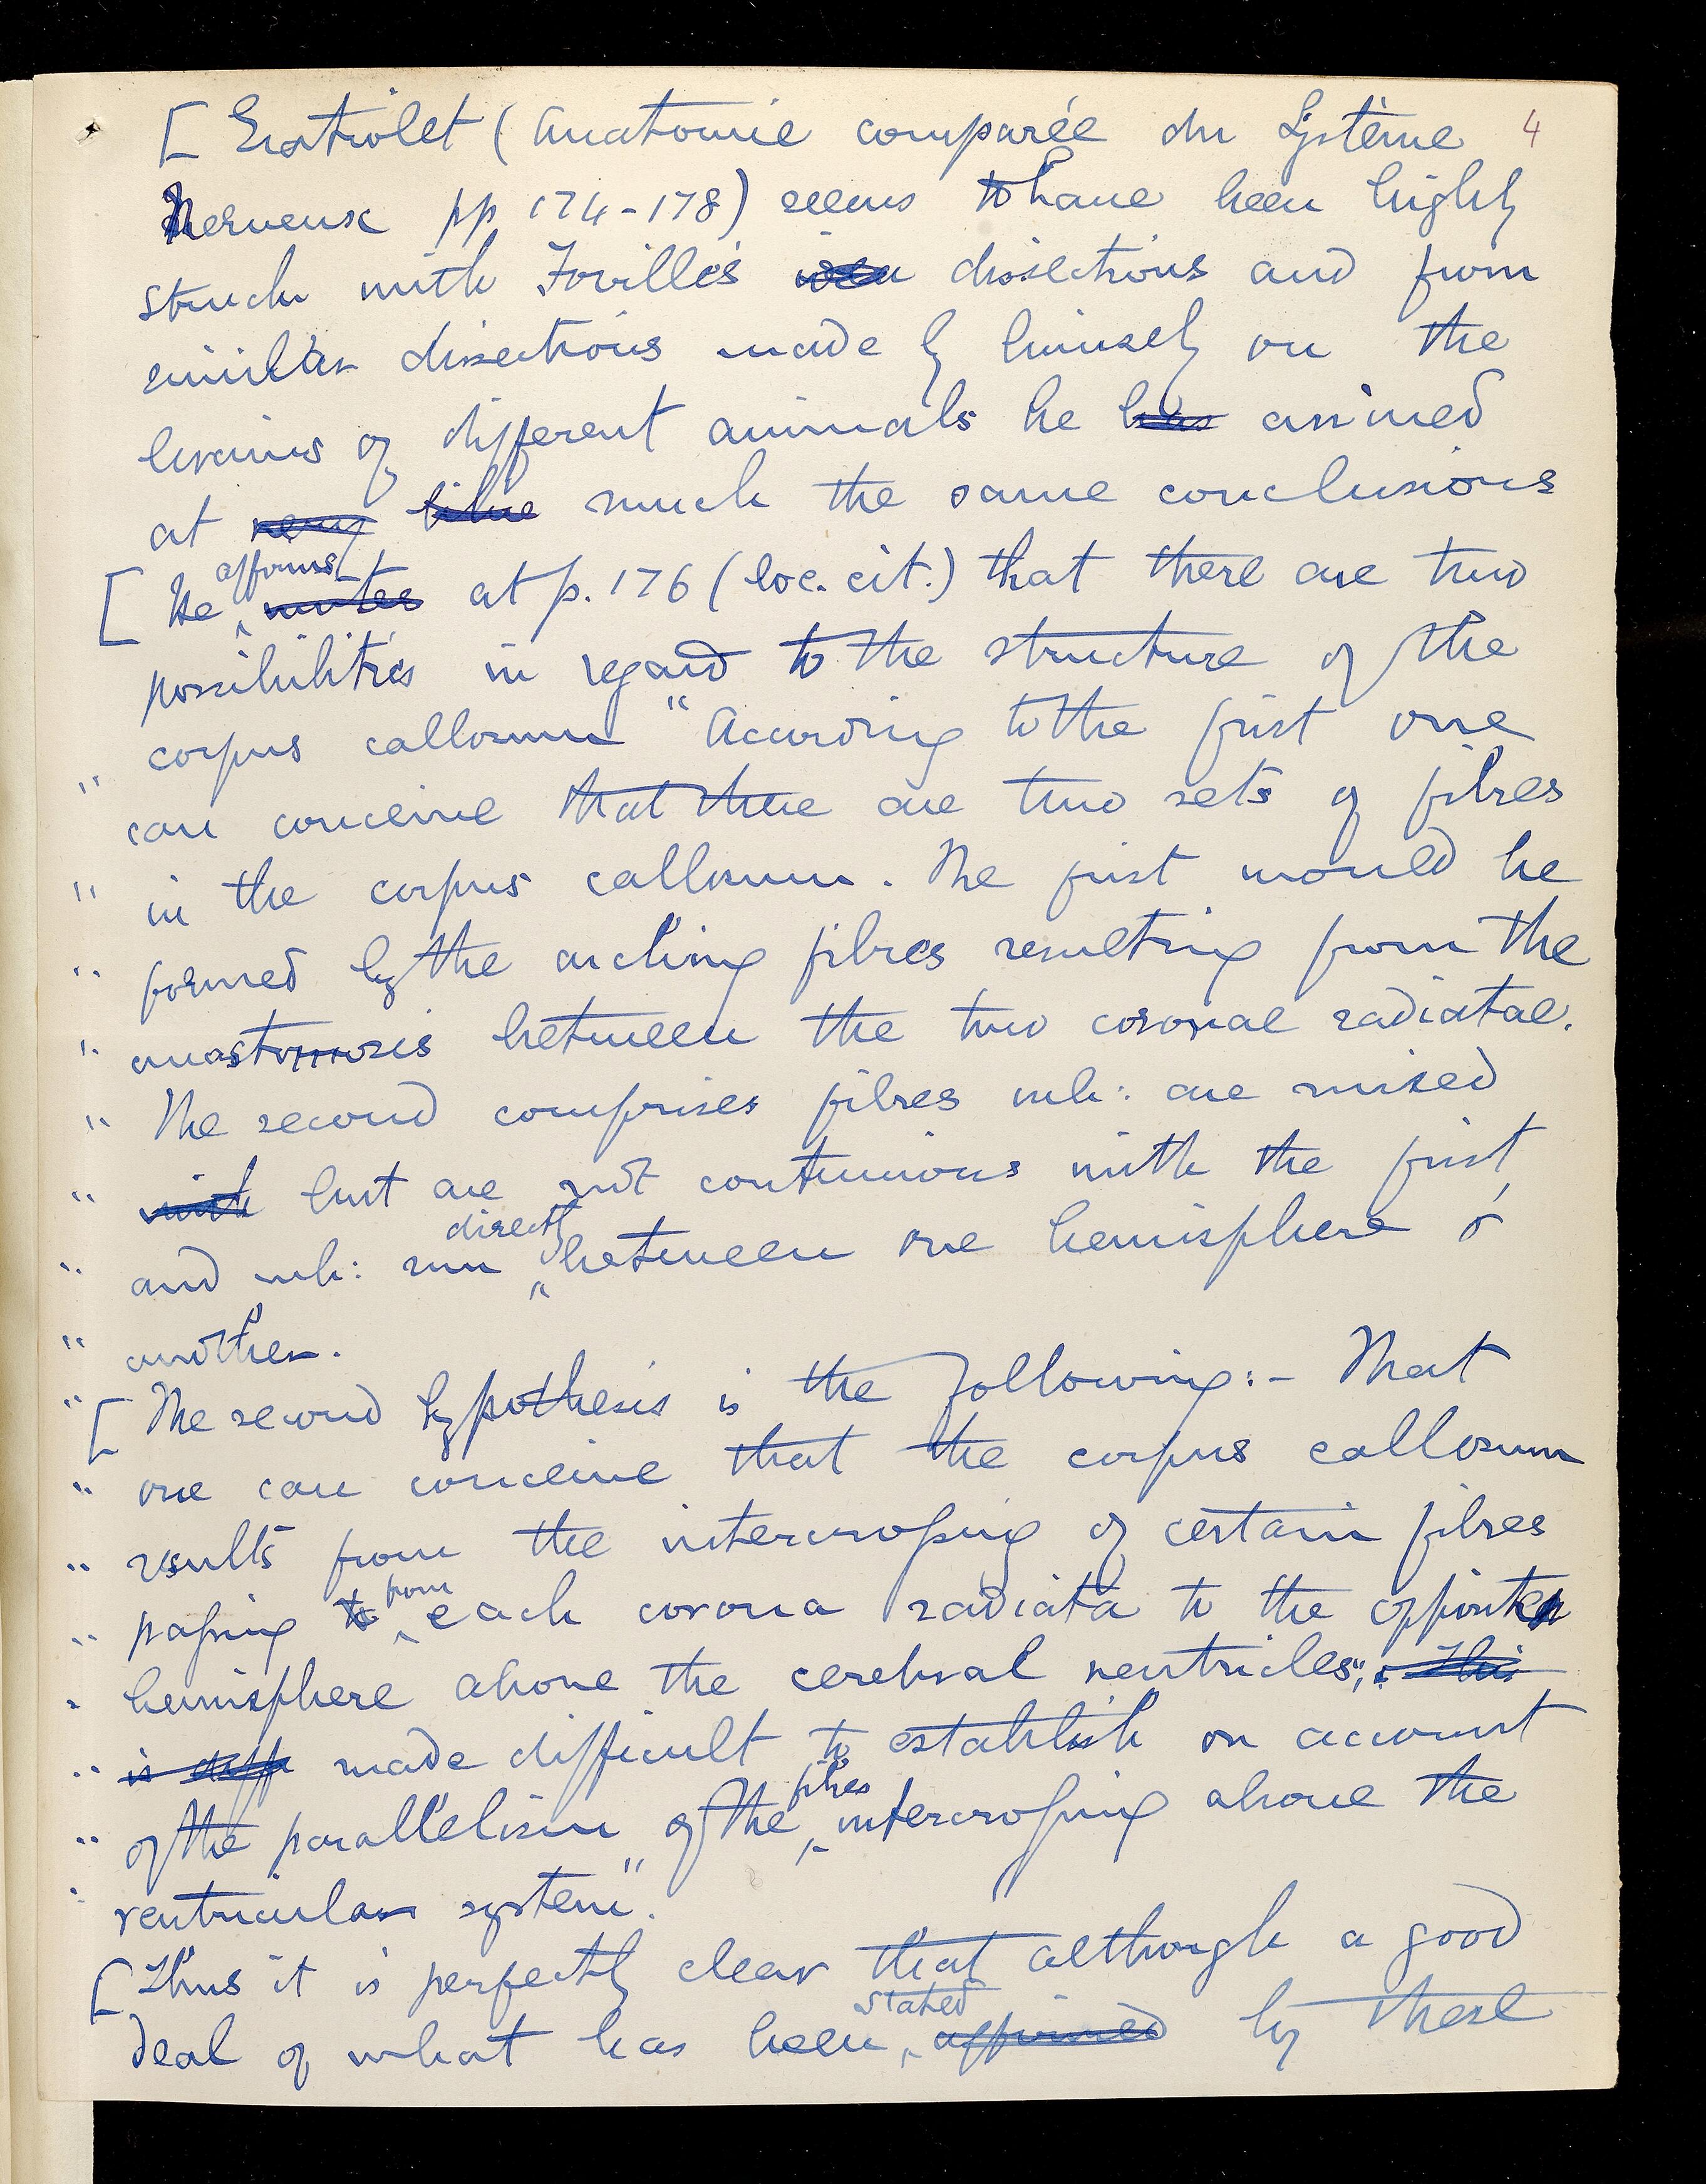 [ Gratiolet (Anatomie comparée du Système 4
Nerveux pp 174-178) seems to have been highly
struck with Foville's dissections and from
similar dissections made by himself on the
brains of different animals he has arrived
at very much the same conclusions
[ He affirms at p. 176 (loc. cit.) that there are two
possibilities in regard to the structure of the
corpus callosum "According to the first one
" can conceive that there are two sets of fibres
" in the corpus callosum. The first would be
" formed by the arching fibres resulting from the
" anastomosis between the two coronae radiatae.
" The second comprises fibres wh: are mixed
" with but are not continuous with the first,
" and wh: run directly between one hemisphere &
" another.
" [ The second hypothesis is the following:- That
" one can conceive that the corpus callosum
" results from the intercrossing of certain fibres
" passing to from each corona radiata to the opposite
" hemisphere above the cerebral ventricles"; This
" is diff made difficult to establish on account
" of the parallelism of the fibres intercrossing above the
" ventricular system".
[ Thus it is perfectly clear that although a good
deal of what has been stated affirmed by these